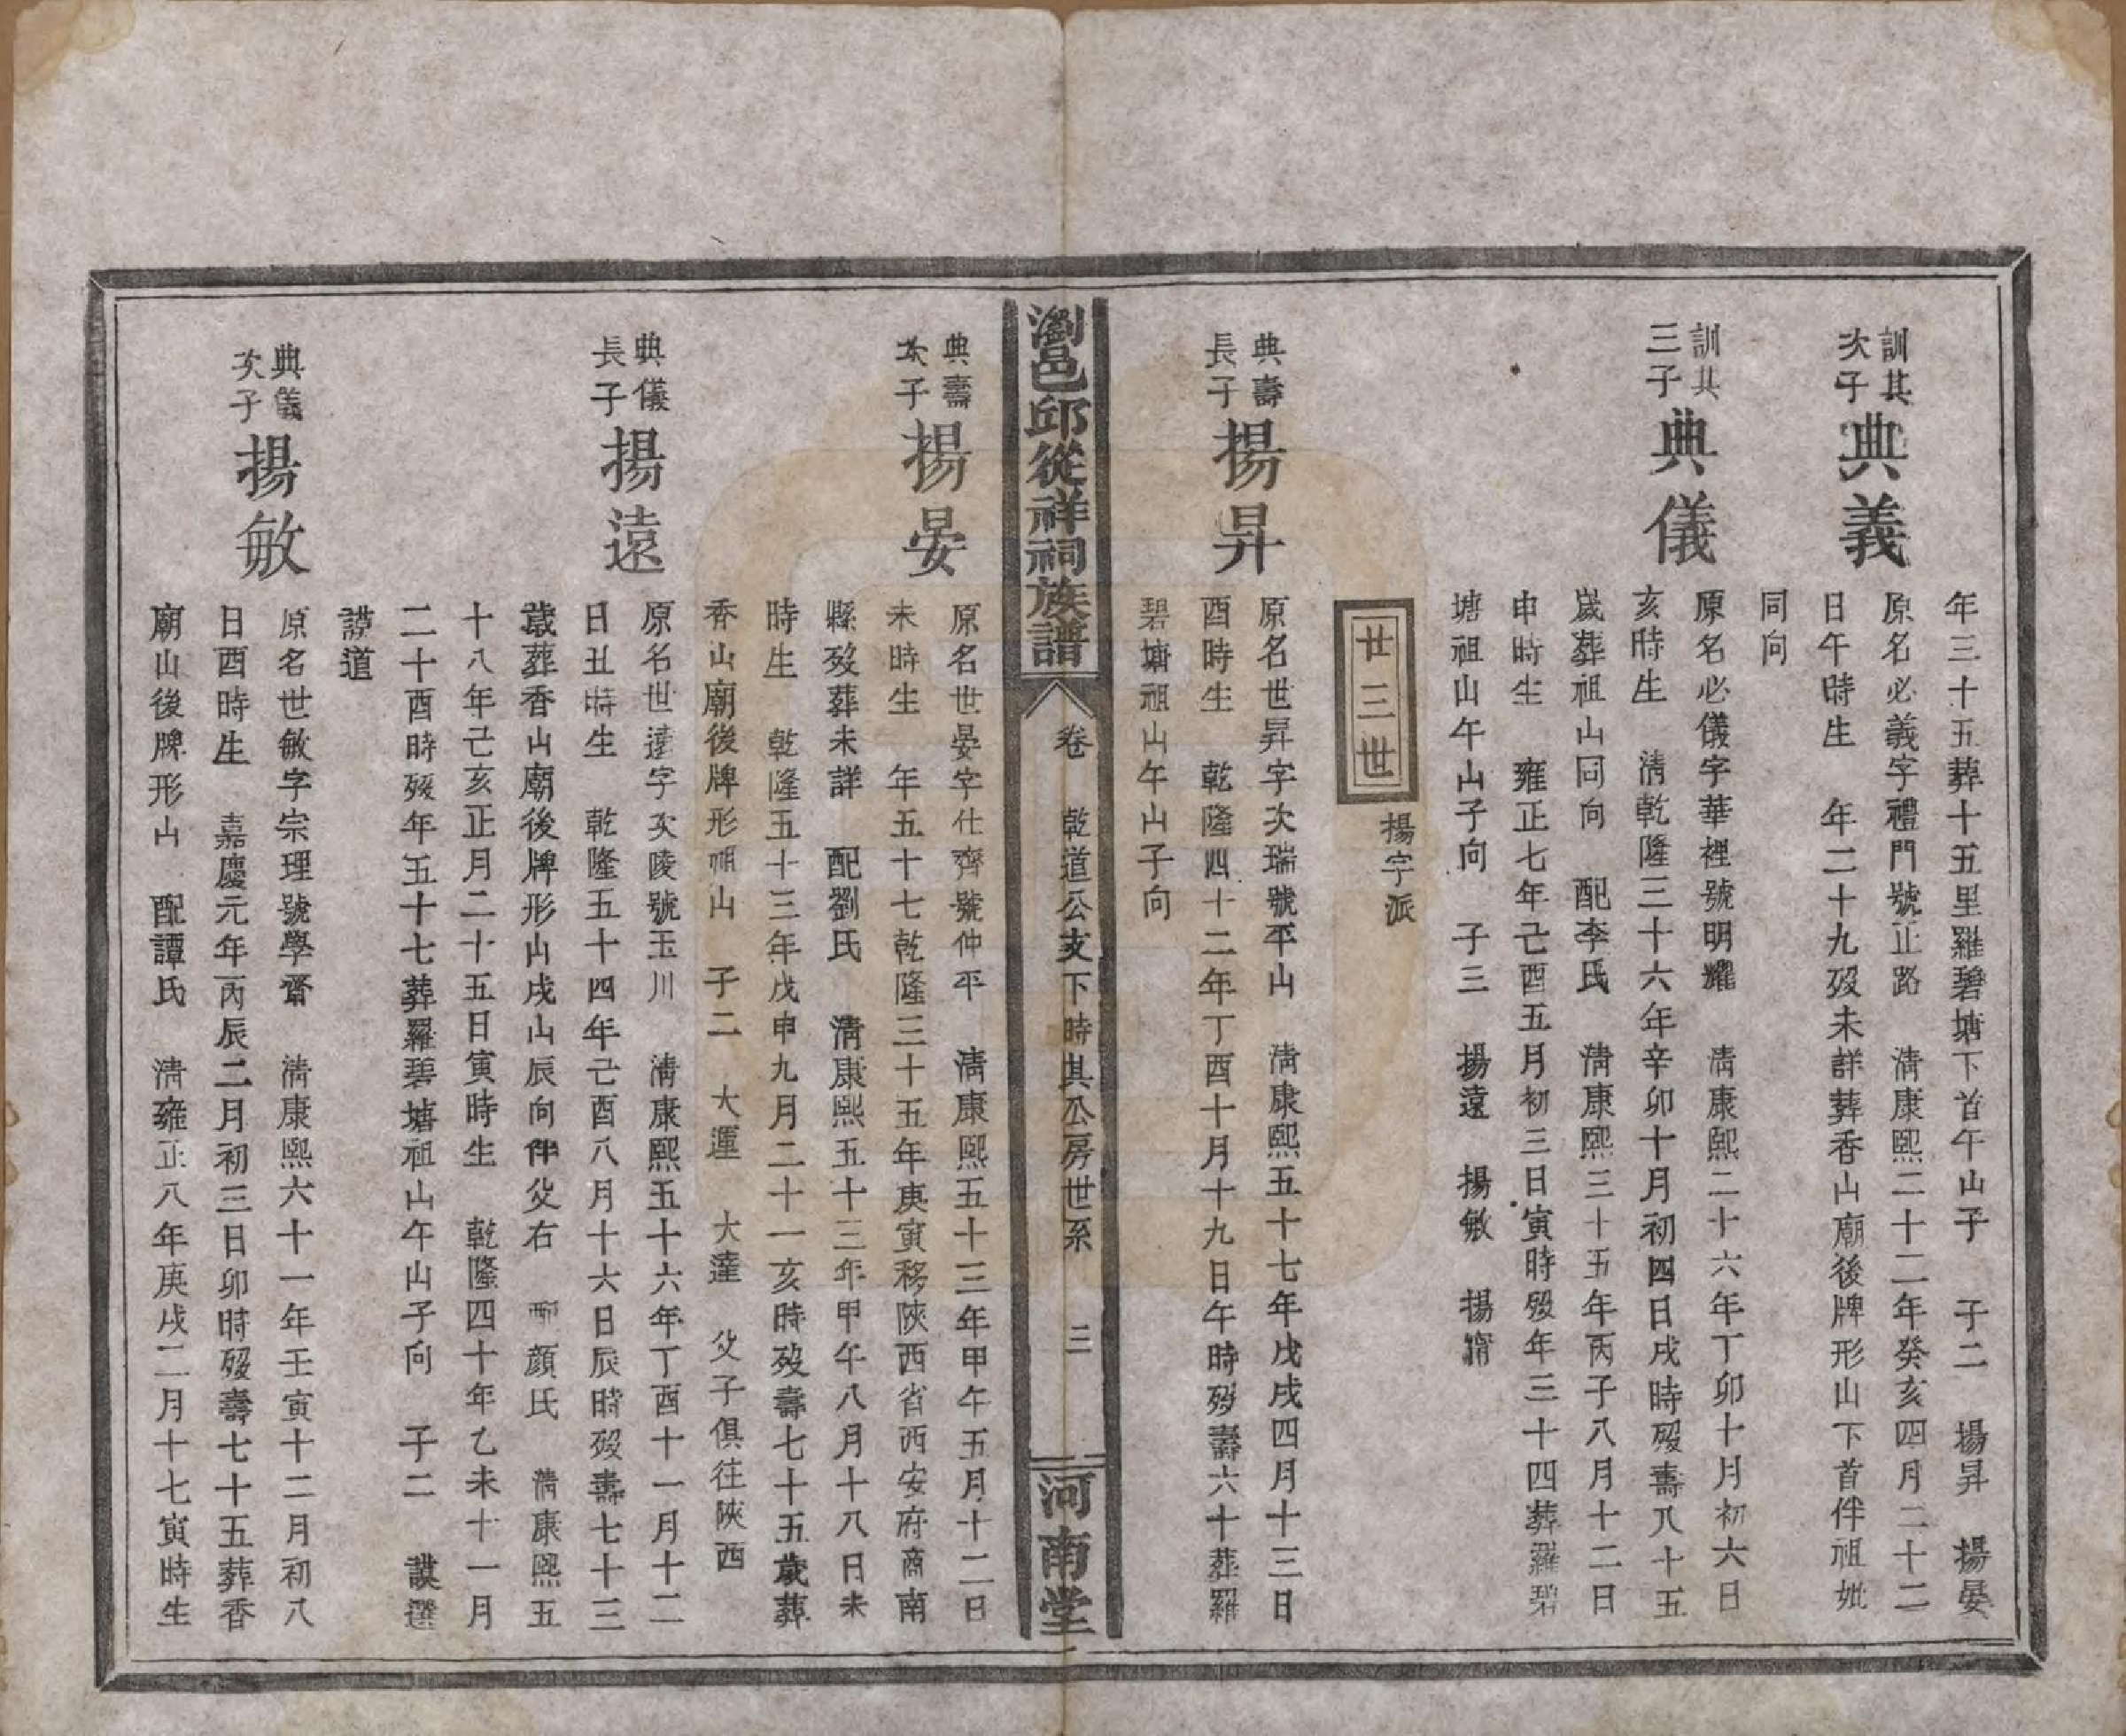 年三十五葬十五里羅碧塘下首午山子　子二　揚昇　揚晏
訓其
次子
典義
原名必義字禮門號正路　清康熙二十二年癸亥四月二十二
日午時生　年二十九歿未詳葬香山廟後牌形山下首伴祖妣
同向
訓其
三子
典儀
原名必儀字華裡號明耀　清康熙二十六年丁卯十月初六日
亥時生　清乾隆三十六年辛卯十月初四日戌時歿壽八十五
歲葬祖山同向　配李氏　清康熙三十五年丙子八月十二日
申時生　雍正七年己酉五月初三日寅時歿年三十四葬羅碧
塘祖山午山子向　子三　揚遠　揚敏　揚甯
廿三世
揚字派
典壽
長子
揚昇
原名世昇字次瑞號平山　清康熙五十七年戊戌四月十三日
酉時生　乾隆四十二年丁酉十月十九日午時歿壽六十葬羅
碧塘祖山午山子向
瀏邑邱從祥祠族譜
卷　乾道公支下時其公房世系　三
河南堂
典壽
次子
揚晏
原名世晏字仕齊號仲平　清康熙五十三年甲午五月十二日
未時生　年五十七乾隆三十五年庚寅移陝西省西安府商南
縣歿葬未詳　配劉氏　清康熙五十三年甲午八月十八日未
時生　乾隆五十三年戊申九月二十一亥時歿壽七十五歲葬
香山廟後牌形祖山　子二　大運　大達　父子俱往陝西
典儀
長子
揚遠
原名世遠字次陵號玉川　清康熙五十六年丁酉十一月十二
日丑時生　乾隆五十四年己酉八月十六日辰時歿壽七十三
歲葬香山廟後牌形山戌山辰向伴父右　配顏氏　清康熙五
十八年己亥正月二十五日寅時生　乾隆四十年乙未十一月
二十酉時歿年五十七葬羅碧塘祖山午山子向　子二　謨選
謨道
典儀
次子
揚敏
原名世敏字宗理號學齋　清康熙六十一年壬寅十二月初八
日酉時生　嘉慶元年丙辰二月初三日卯時歿壽七十五葬香
廟山後牌形山　配譚氏　清雍正八年庚戌二月十七寅時生